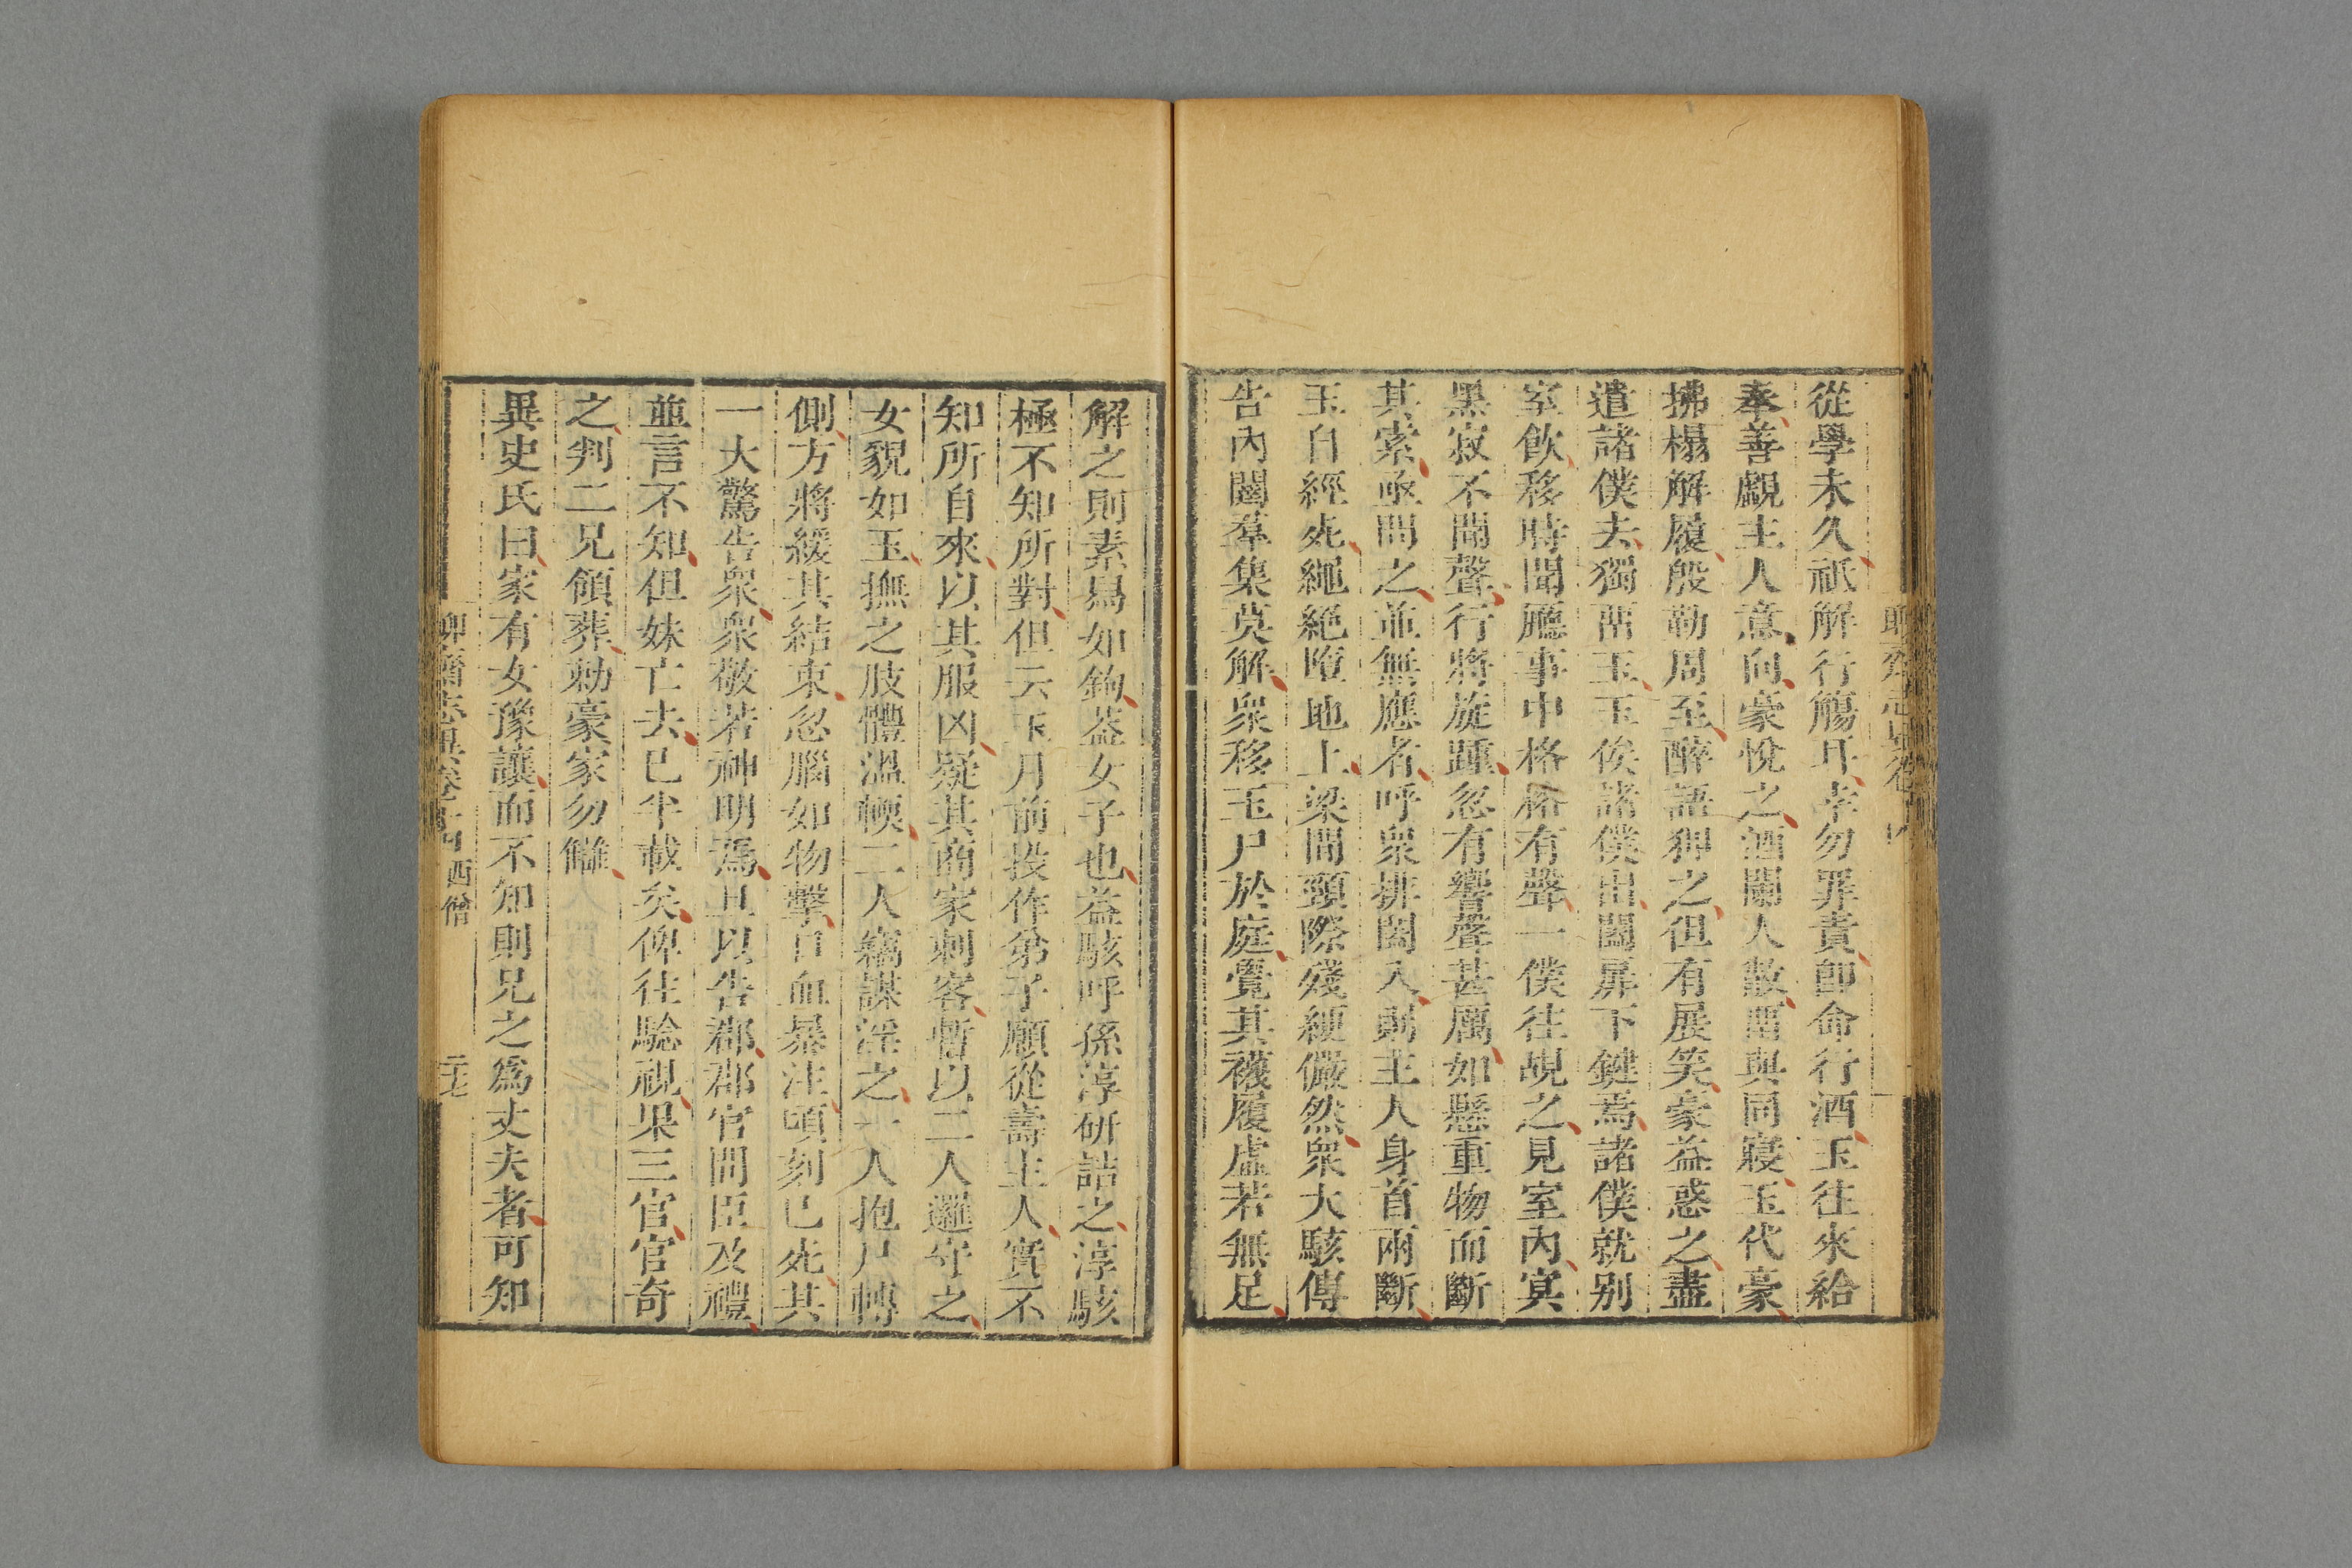 從學未久祇解行觴耳幸勿罪責卽命行酒玉往來給
奉善覷主人意向豪悅之酒闌人散畱與同寢玉代豪
拂榻解履殷勤周至醉語狎之但有展笑豪益惑之盡
遣諸僕去獨畱玉玉俟諸僕出闔扉下鍵焉諸僕就别
室飲移時聞廳事中格格有聲一僕往覘之見室內冥
黑寂不聞聲行將旋踵忽有響聲甚厲如懸重物而斷
其索亟問之並無應者呼衆排闔入則主人身首兩斷
玉自經死繩絕墮地上梁間頸際殘綆儼然衆大駭傳
告內闥羣集莫解衆移玉尸於庭覺其襪履虛若無足
解之則素舄如鉤葢女子也益駭呼孫淳研詰之淳駭
極不知所對但云玉月前投作弟子願從壽主人實不
知所自來以其服凶疑其商家刺客暫以二人邏守之
女貌如玉撫之肢體溫輭二人竊謀淫之一人抱尸轉
側方將緩其結束忽腦如物擊口血暴注頃刻已死其
一大驚告衆衆敬若神明焉且以告郡郡官問臣及禮
並言不知但妹亡去已半載矣俾往驗視果三官官奇
之判二兄領葬勅豪家勿讎
異史氏曰家有女豫讓而不知則兄之爲丈夫者可知
聊齋志異卷十四 西僧 三七